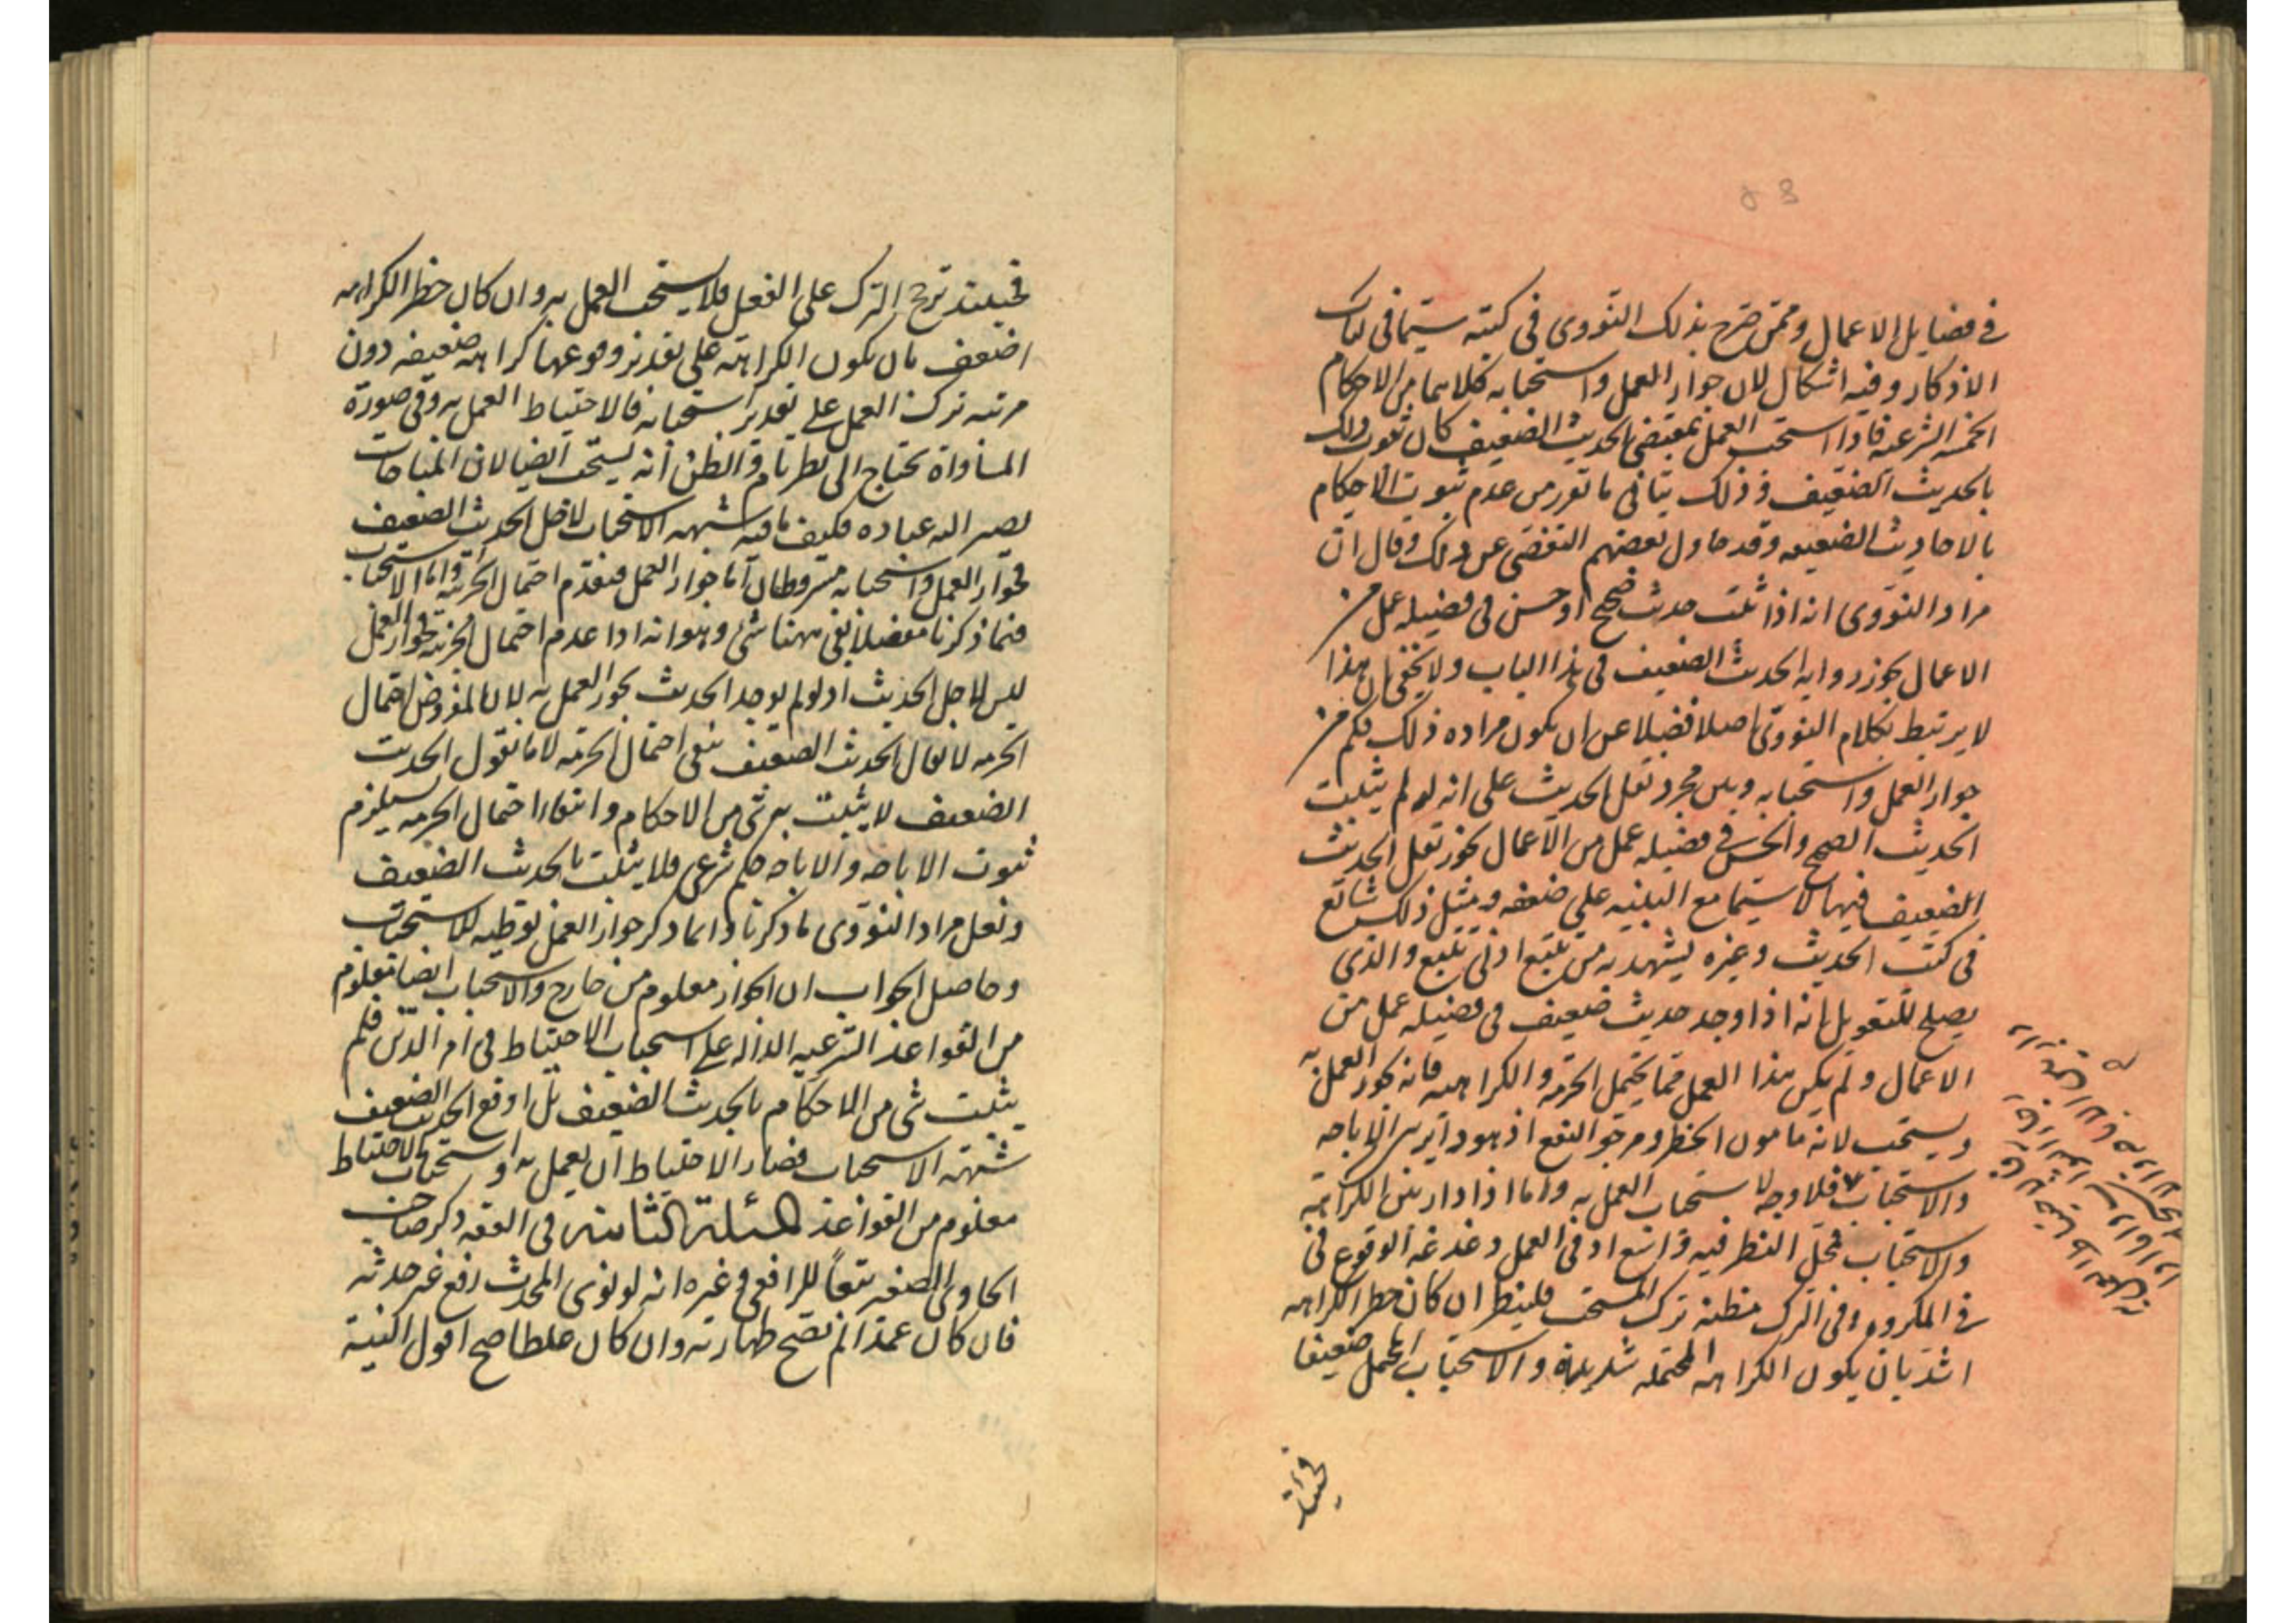 في فضايل الاعمال وممن صرح بذلك النووى فى كتبه سيما فى كتاب
الاذكار وفيه اشكال لان جواز العمل واستحبابه كلاهما من الاحكام
الخمسه الشرعيه فاذا استحب العمل بمقتضى الحديث الضعيف كان ثبوت ذلك
بالحديث الضعيف وذلك ينافى ما تقرر من عدم ثبوت الاحكام
بالاحاديث الضعيفه وقد حاول بعضهم التفصى عن ذلك وقال ان
مراد النووى انه اذا ثبت حديث صحيح او حسن فى فضيله عمل من
الاعمال يجوز روايه الحديث الضعيف فى هذا الباب ولا يخفى ان هذا
لا يرتبط بكلام النووى اصلا فضلا عن ان يكون مراده ذلك فكم من
جواز العمل واستحبابه وبين مجرد نقل الحديث على انه لو لم يثبت
الحديث الصحيح والحسن فى فضيله عمل من الاعمال يجوز نقل الحديث
الضعيف فيها لا سيما مع التنبيه على ضعفه ومثل ذلك شائع
فى كتب الحديث وغيره يشهد به من تتبع ادنى تتبع والذى
يصلح للتعويل انه اذا وجد حديث ضعيف فى فضيله عمل من
الاعمال ولم يكن هذا العمل مما يحتمل الحرمة والكراهيه فانه يجوز العمل به
ويستحب لانه مامون الخطر ومرجو النفع اذ هو دائر بين الاباحه
والاستحباب فلا وجه لاستحباب العمل به واما اذا دار بين الكراهة
والاستحباب فمحل النظر فيه واسع اذ فى العمل دغدغه الوقوع فى
فى المكروه وفى الترك مظنه ترك المستحب فلينظر ان كان خطر الكراهه
اشد بان يكون الكراهه المحتمله شديدة والاستحباب المحتمل ضعيفا
فحينئذ
فحينئذ ترجح الترك على الفعل فلا يستحب العمل به وان كان خطر الكراهه
اضعف بان يكون الكراهة على تقدير وقوعها كراهه ضعيفه دون
مرتبه ترك العمل على تقدير استحبابه فالاحتياط العمل به وفى صورة
المساواة يحتاج الى نظر تام والظن انه يستحب ايضا لان المباحات
يصير اليه عباده فكيف ما فيه شبهه الاستحباب لاجل الحديث الضعيف
فجواز العمل واستحبابه مشروطان اما جواز العمل فبعدم احتمال الحرمة واما الاستحباب
فبما ذكرنا مفصلا بقى ههنا شئ وهو انه اذا عدم احتمال الحرمة فجواز العمل
ليس لاجل الحديث اذ لو لم يوجد الحديث يجوز العمل به لان المفروض احتمال
الحرمه لا يقال الحديث الضعيف ينفى احتمال الحرمة لانا نقول الحديث
الضعيف لا يثبت به شئ من الاحكام وانتفاء احتمال الحرمه يستلزم
ثبوت الاباحه والاباحه حكم شرعى فلا يثبت بالحديث الضعيف
ولعل مراد النووى ما ذكرنا وانما ذكر جواز العمل توطيه للاستحباب
وحاصل الجواب ان الجواز معلوم من خارج والاستحباب ايضا معلوم
من القواعد الشرعيه الداله على استحباب الاحتياط فى امر الدين فلم
يثبت شئ من الاحكام بالحديث الضعيف بل اوقع الحديث الضعيف
شبهة الاستحباب فصار الاحتياط ان يعمل به واستحباب الاحتياط
معلوم من القواعد المسئلة الثامنه فى الفقه ذكر صاحب
الحاوى الصغير تبعا للرافعى وغيره انه لو نوى المحدث رفع غير حدثه
فان كان عمدا لم تصح طهارته وان كان غلطا صح اقول النية